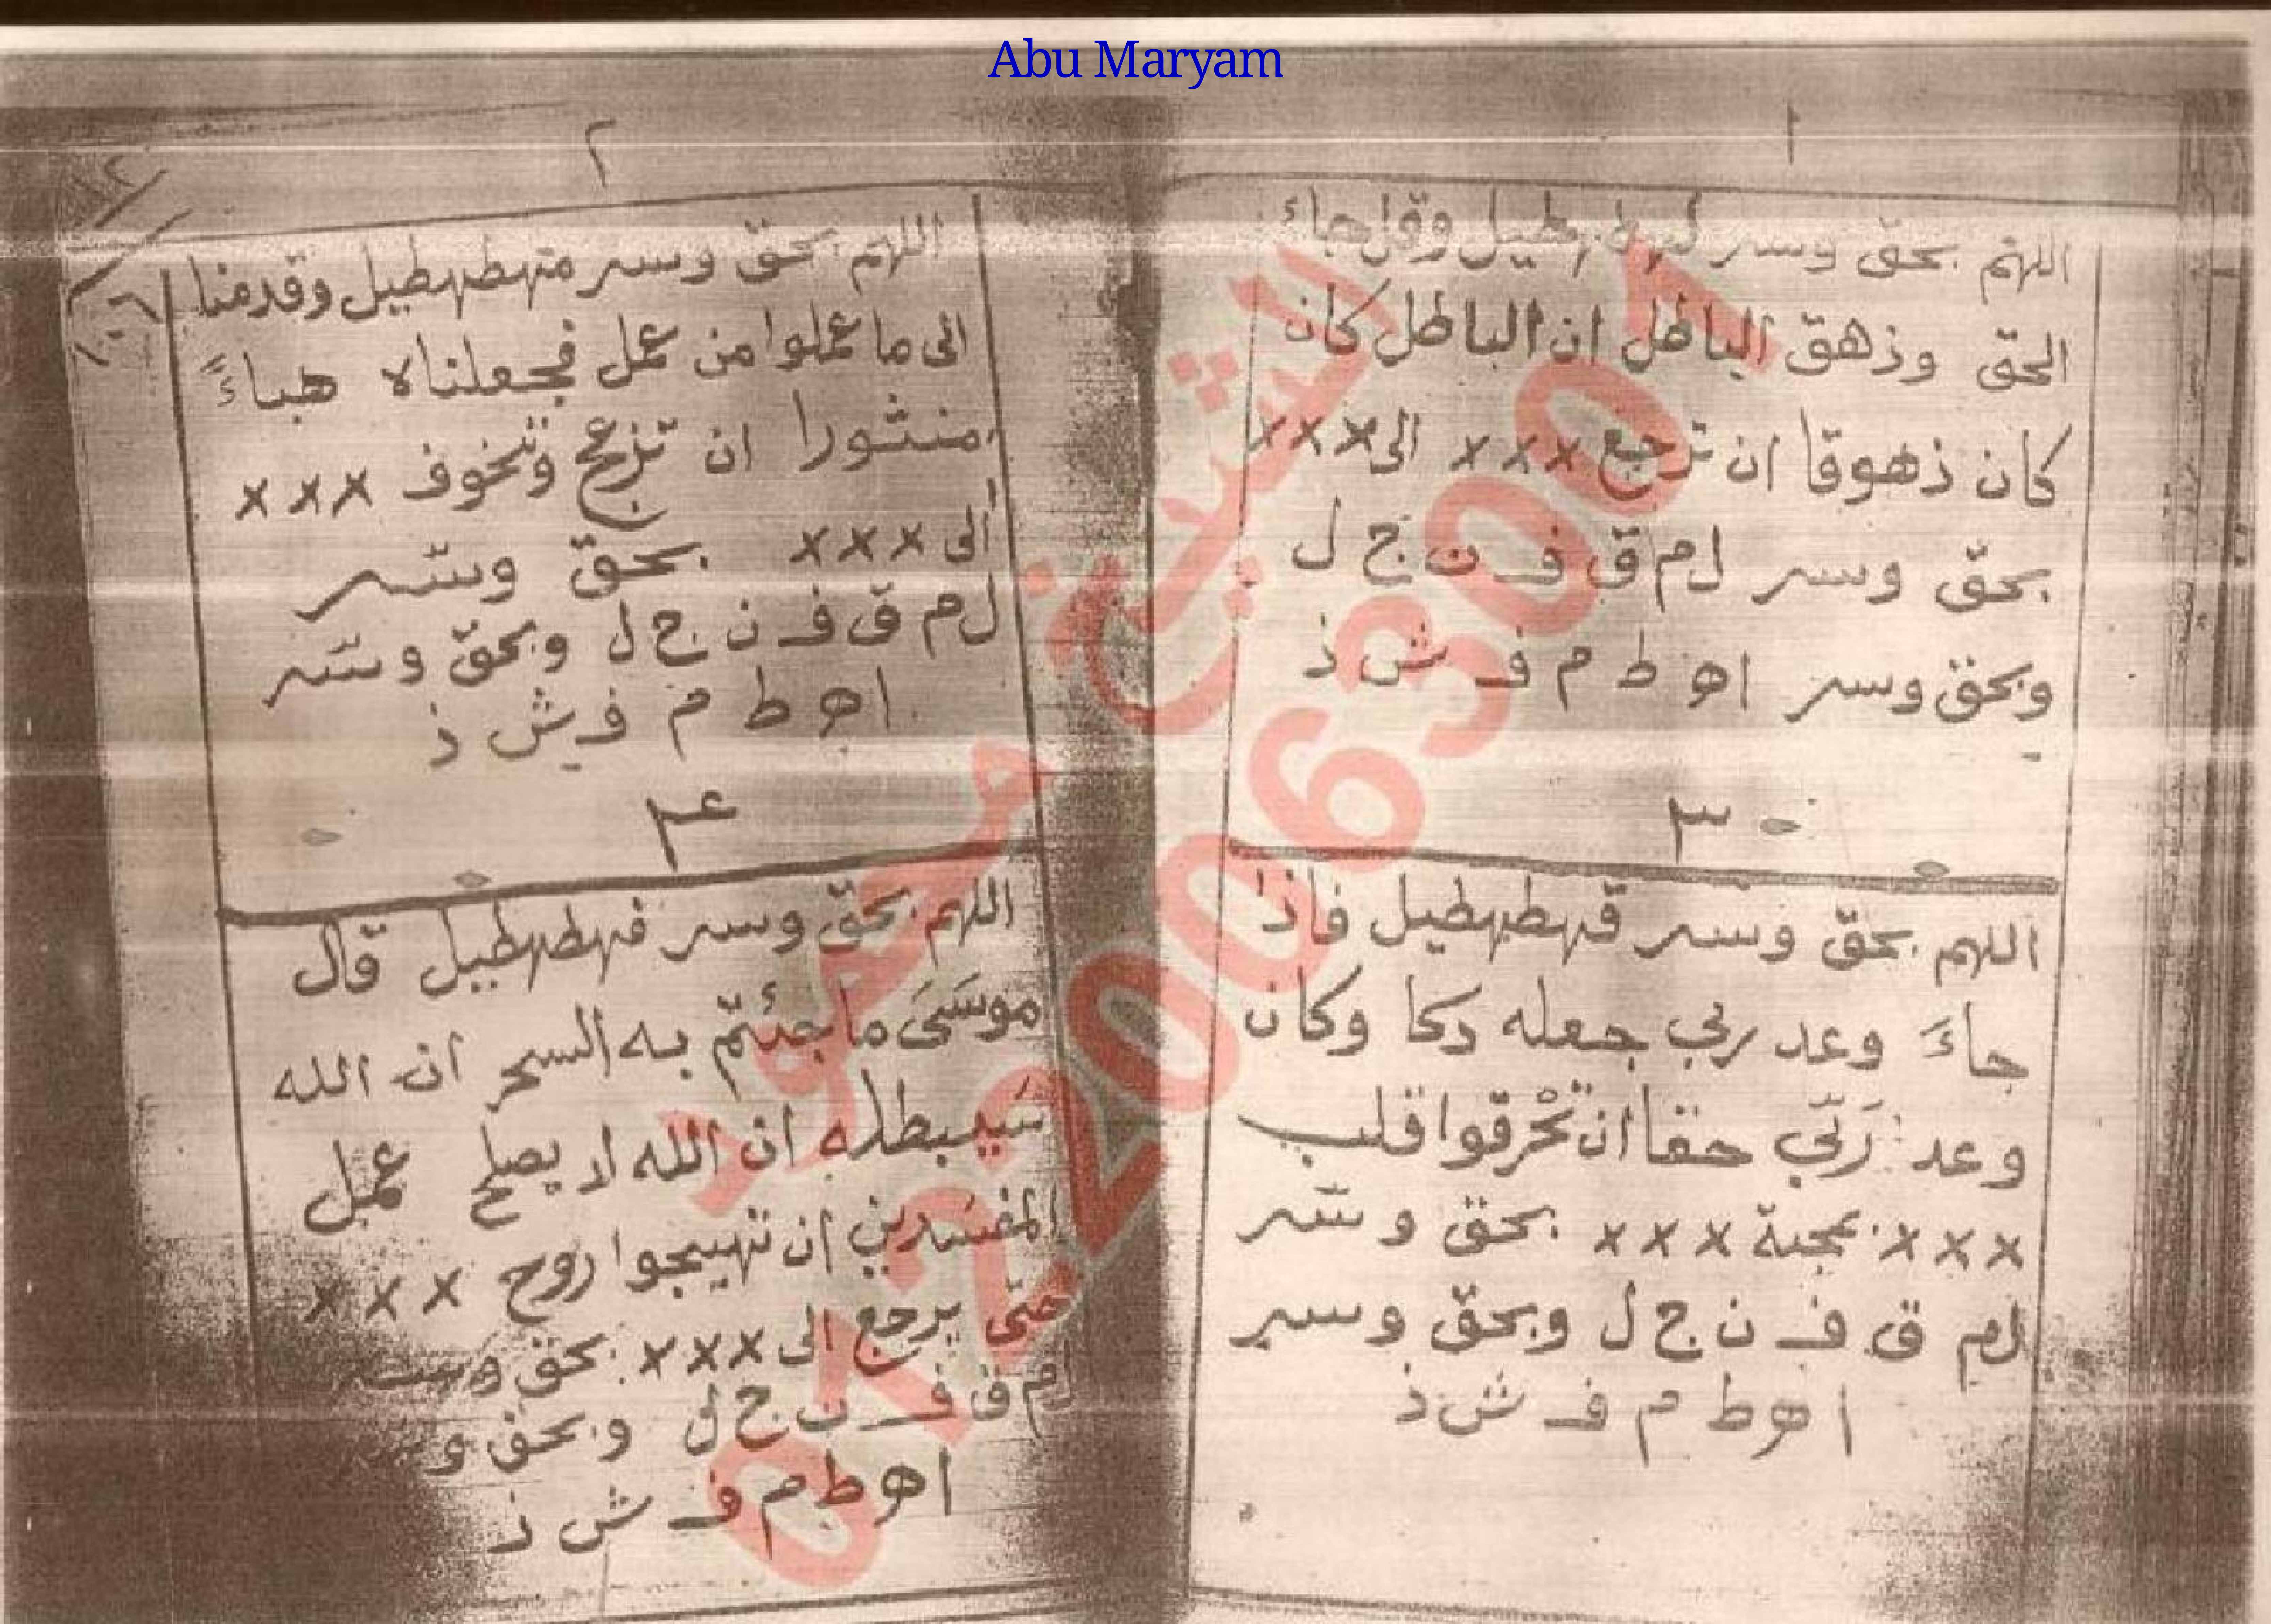 Abu Maryam
١
اللهم بحق وسر لهطهطيل وقل جاء
الحق وذهق الباطل ان الباطل كان
كان ذهوقا ان ترجع ××× الى ×××
بحق وسر ل م ق ف ن ج ل
وبحق وسر ا ه ط م ف ش ذ
٣
اللهم بحق وسر قهطهطيل فاذا
جاءَ وعد ربي جعله دكا وكان
وعد رَبّي حقا ان تحْرقوا قلب
××× بمحبة ××× بحق وسر
ل م ق ف ن ج ل وبحق وسر
ا ه ط م ف ش ذ
٢
اللهم بحق وسر مهطهطيل وقدمنا
الى ما عملوا من عمل فجعلناه هباءً
منثورا ان تزعج وتخوف ×××
الى ××× بحق وسر
ل م ق ف ن ج ل وبحق وسر
ا ه ط م ف ش ذ
٤
اللهم بحق وسر فهطهطيل قال
موسَىَ ما جئتم به السحر ان الله
سَيبطله ان الله لا يصلح عمل
المفسدين ان تهيجوا روح ×××
حتى يرجع الى ××× بحق
ل م ق ف ن ج ل وبحق
ا ه ط م ف ش ذ
الشيخ محمود
01220063001